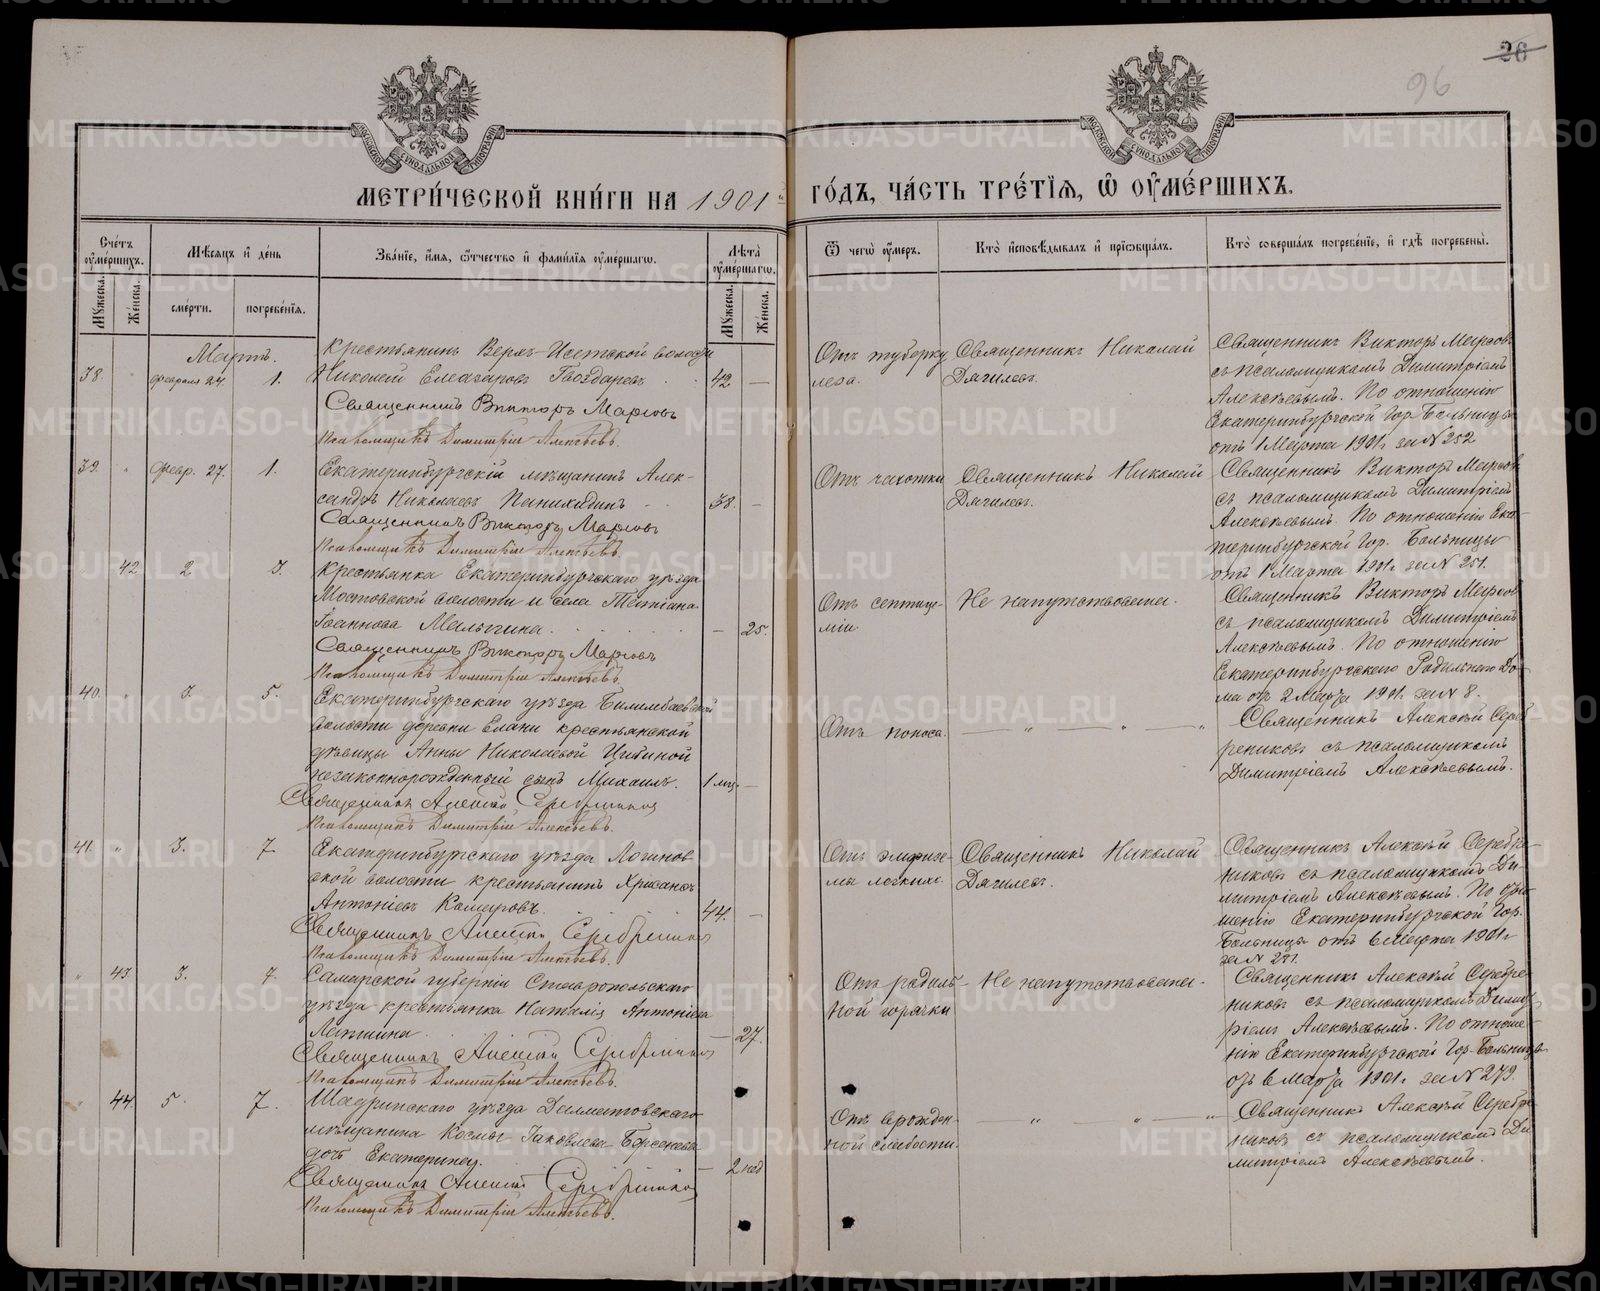 26
96
МЕТРИ́ЧЕСКОЙ КНИ́ГИ НА 1901й ГО́ДЪ, ЧА́СТЬ ТРЕ́ТІЯ, Ѿ ОУ҆МЕ́РШИХЪ.
Сче́тъ оу҆ме́ршихъ.
Мѣ́сяцъ и҆ де́нь
Зва́нїе, и҆́мя, ѻ҆́тчество и҆ фами́лїя оу҆ме́ршагѡ.
Лѣ́та оу҆ме́ршагѡ.
Ѿ чегѡ̀ оу҆́меръ.
Кто̀ и҆сповѣ́дывалъ и҆ прїѡбща́лъ.
Кто̀ соверша́лъ погребе́нїе, и҆ гдѣ̀ погребены̀.
Мꙋ́жеска.
Же́нска.
сме́рти.
погребе́нїя.
Мꙋ́жеска.
Же́нска.
Мартъ.
38. " февраля 27 1.
Крестьянинъ Верхъ-Исетской волости
Елеазаровъ Гвоздаревъ 42 —
Священникъ Викторъ
Псаломщикъ Димитрій Алексѣевъ.
Отъ туберку
леза.
Священникъ Николай
Дягилевъ.
Священникъ Викторъ
съ псаломщикомъ Димитріемъ
Алексѣевымъ. По отношенію
Екатеринбургской Гор. Больницы
отъ 1 Марта 1901 г за N 252
39. " Февр. 27. 1.
Екатеринбургскій мѣщанинъ Алек-
сандръ Николаевъ Панихидинъ 38. —
Священникъ Викторъ
Псаломщикъ Димитрій Алексѣевъ.
Отъ чахотки
Священникъ Николай
Дягилевъ.
Священникъ Викторъ
съ псаломщикомъ Димитріемъ
Алексѣевымъ. По отношенію Ека-
теринбургской Гор. Больницы
отъ 1 Марта 1901 г. за N 251.
42 2 3.
Крестьянка Екатеринбургскаго уѣзда
Мостовской волости и села Татіана
Іоаннова Малыгина. — 25.
Священникъ Викторъ
Псаломщикъ Димитрій Алексѣевъ.
Отъ септице-
міи.
Не напутствована.
Священникъ Викторъ
съ псаломщикомъ Димитріемъ
Алексѣевымъ. По отношенію
Екатеринбургскаго Родильнаго До-
ма отъ 2 Марта 1901 г. за N 8.
40. " 3. 5.
Екатеринбургскаго уѣзда Билимбаевской
волости деревни Елани крестьянской
дѣвицы Анны Николаевой
незаконнорожденный сынъ Михаилъ. 1 мѣс. —
Священникъ Алексій Серебренниковъ
Псаломщикъ Димитрій Алексѣевъ.
Отъ поноса.
— " — " — "
Священникъ Алексѣй Сереб
рениковъ съ псаломщикомъ
Димитріемъ Алексѣевымъ.
41. " 3. 7.
Екатеринбургскаго уѣзда Логинов
ской волости крестьянинъ
Антоніевъ 44. —
Священникъ Алексій Серебренниковъ
Псаломщикъ Димитрій Алексѣевъ.
Отъ эмфизе-
мы легкихъ.
Священникъ Николай
Дягилевъ.
Священникъ Алексѣй Серебре-
никовъ съ псаломщикомъ Ди-
митріемъ Алексѣевымъ. По отно
шенію Екатеринбургской Гор.
Больницы отъ 6 Марта 1901 г
за N 271.
" 43. 3. 7.
Самарской губерніи Ставропольскаго
уѣзда крестьянка Наталія Антоніева
Лапшина — 27.
Священникъ Алексій Серебренниковъ
Псаломщикъ Димитрій Алексѣевъ.
Отъ родиль-
ной горячки
Не напутствована.
Священникъ Алексѣй Серебре-
никовъ съ псаломщикомъ Димит
ріемъ Алексѣевымъ. По отноше-
нію Екатеринбургской Гор. Больницы
отъ 6 Марта 1901 г. за N 279.
" 44. 5. 7.
Шадринскаго уѣзда Далматовскаго
мѣщанина Космы Іаковлева
дочь Екатерина. — 2 нед
Священникъ Алексій Серебренниковъ
Псаломщикъ Димитрій Алексѣевъ.
Отъ врожден-
ной слабости.
— " — " — "
Священникъ Алексѣй Серебре
никовъ съ псаломщикомъ Ди
митріемъ Алексѣевымъ.
METRIKI.GASO-URAL.RU